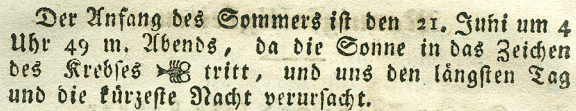 Der Anfang des Sommers iſt den 21. Juni um 4
Uhr 49 m. Abends, da die Sonne in das Zeichen
des Krebſes tritt, und uns den längſten Tag
und die kürzeſte Nacht verurſacht.